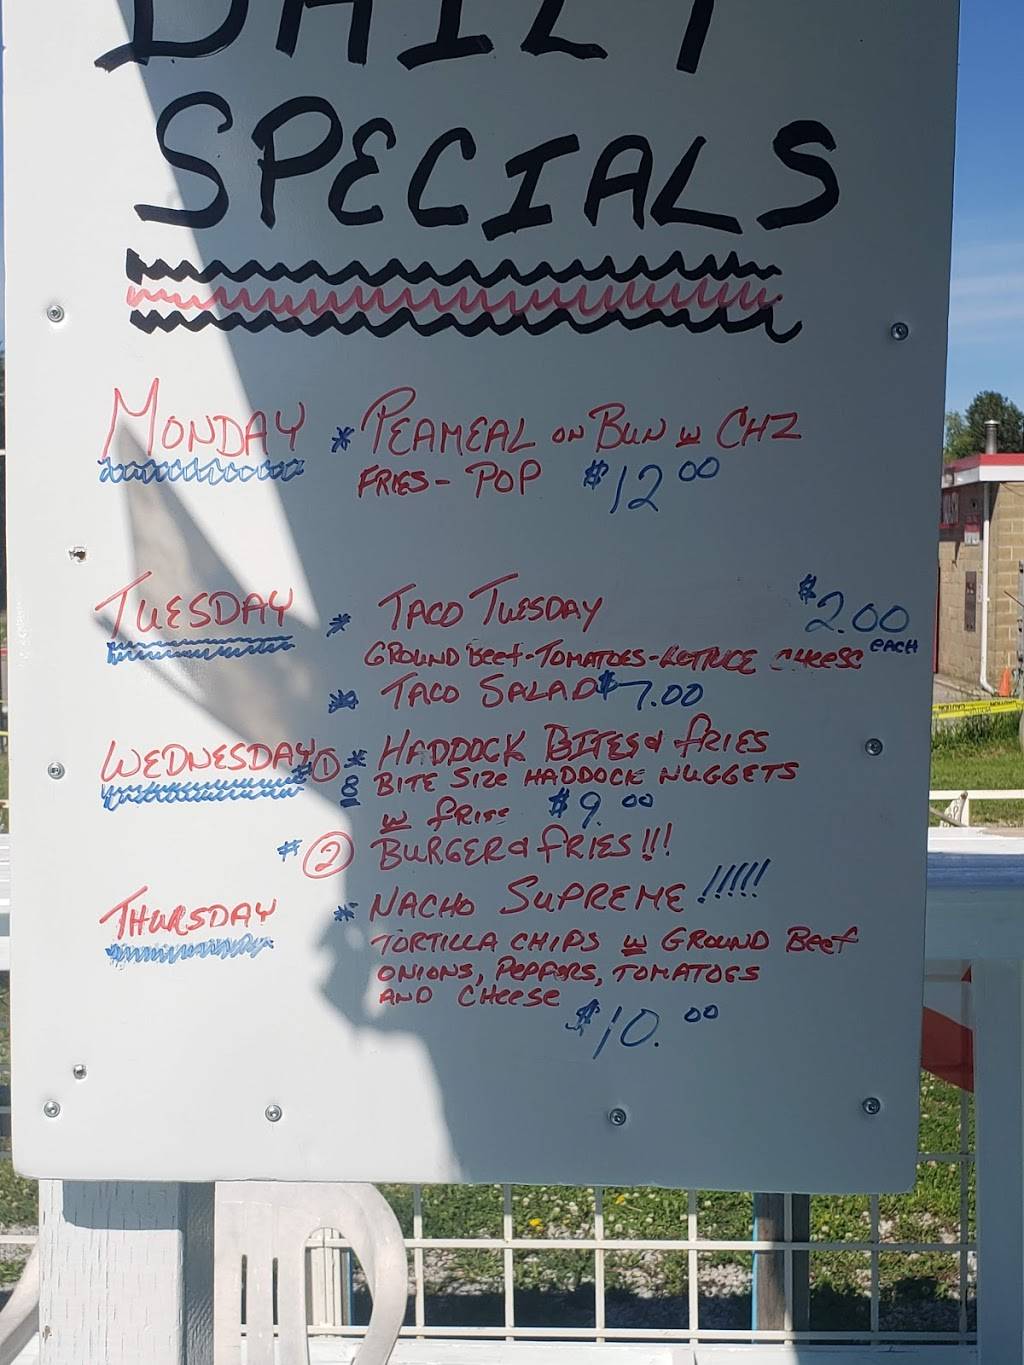 DAILY
SPECIALS
MONDAY * PEAMEAL ON BUN w CHZ
FRIES - POP $12.00
TUESDAY * TACO TUESDAY $2.00
EACH
GROUND Beef - TOMATOES - LETTUCE CHEESE
* TACO SALAD $7.00
WEDNESDAY ① * HADDOCK BITES & FRIES
8 BITE SIZE HADDOCK NUGGETS
w fries $9.00
# ② BURGER & FRIES!!!
THURSDAY * NACHO SUPREME !!!!!
TORTILLA CHIPS w GROUND Beef
ONIONS, PEPPERS, TOMATOES
AND CHEESE
$10.00